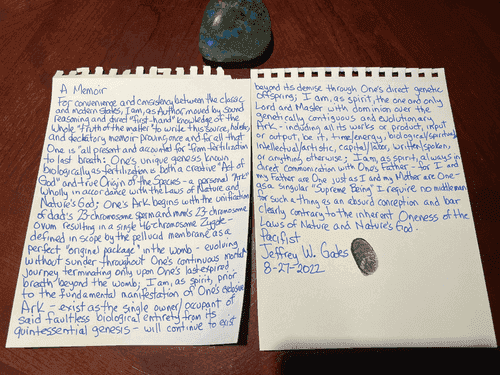 A Memoir
For convenience and consistency between the classic
and modern states, I am, as Author moved by sound
reasoning and direct "first-hand" knowledge of the
Whole "Truth of the matter" to write this source, holistic,
and declaratory memoir proving once and for all that
One is "all present and accounted for" from fertilization
to last breath: One's unique genesis known
biologically as fertilization is both a creative "Act of
God" and true Origin of the Species - a personal "Ark"
wholly in accordance with the Laws of Nature and
Nature's God; One's Ark begins with the unification
of dad's 23-chromosome sperm and mom's 23-chromosome
ovum resulting in a single 46-chromosome Zygote -
defined in scope by the pellucid membrane as a
perfect "original package" in the womb - evolving
without sunder throughout One's continuous mortal
journey terminating only upon One's last expired
breath beyond the womb; I am, as spirit, prior
to the fundamental manifestation of One's exclusive
Ark - exist as the single owner/occupant of
said faultless biological entirety from its
quintessential genesis - will continue to exist
beyond its demise through One's direct genetic
offspring; I am, as spirit, the one and only
Lord and Master with dominion over the
genetically contiguous and evolutionary
Ark - including all its works or product, input
or output, be it, time/energy, biological/spiritual,
intellectual/artistic, capital/labor, written/spoken,
or anything otherwise; I am, as spirit, always in
direct communication with One's Father - for I and
my Father are One just as I and my Mother are One -
as a singular "Supreme Being" I require no middleman
for such a thing as an absurd conception and bar
clearly contrary to the inherent Oneness of the
Laws of Nature and Nature's God.
Pacifist
Jeffrey W. Gates
8-27-2022